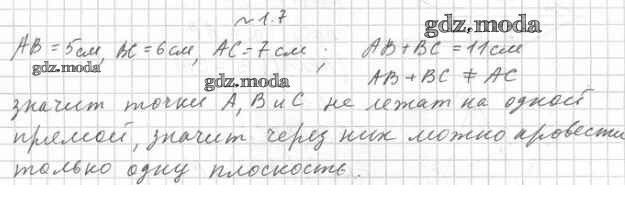 ~ 1.7
gdz.moda
AB = 5см, BC = 6см, AC = 7см; AB + BC = 11см
gdz.moda
gdz.moda
AB + BC ≠ AC
значит точки A, B и C не лежат на одной
прямой, значит через них можно провести
только одну плоскость.